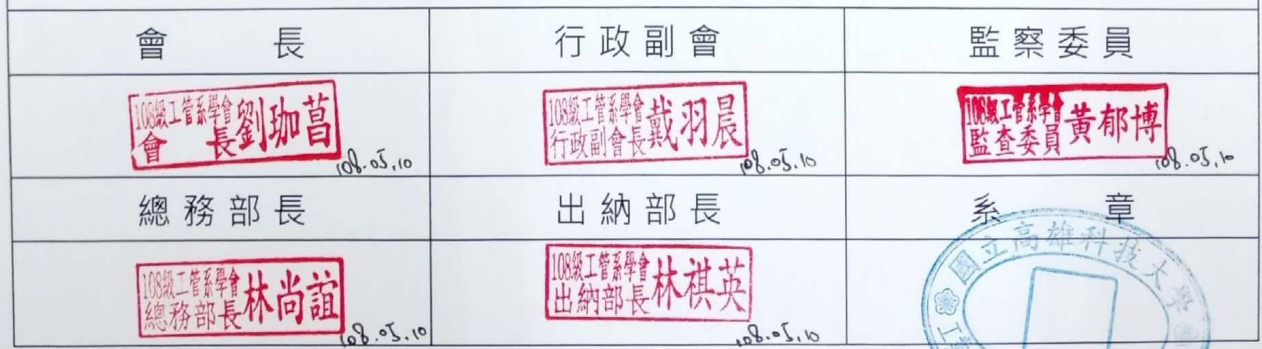 會長
行政副會
監察委員
108級工管系學會
會長
劉珈菖
108.05.10
108級工管系學會
行政副會長
戴羽晨
108.05.10
108級工管系學會
監查委員
黃郁博
108.05.10
總務部長
出納部長
系章
108級工管系學會
總務部長
林尚誼
108.05.10
108級工管系學會
出納部長
林祺英
108.05.10
國立高雄科技大學
工